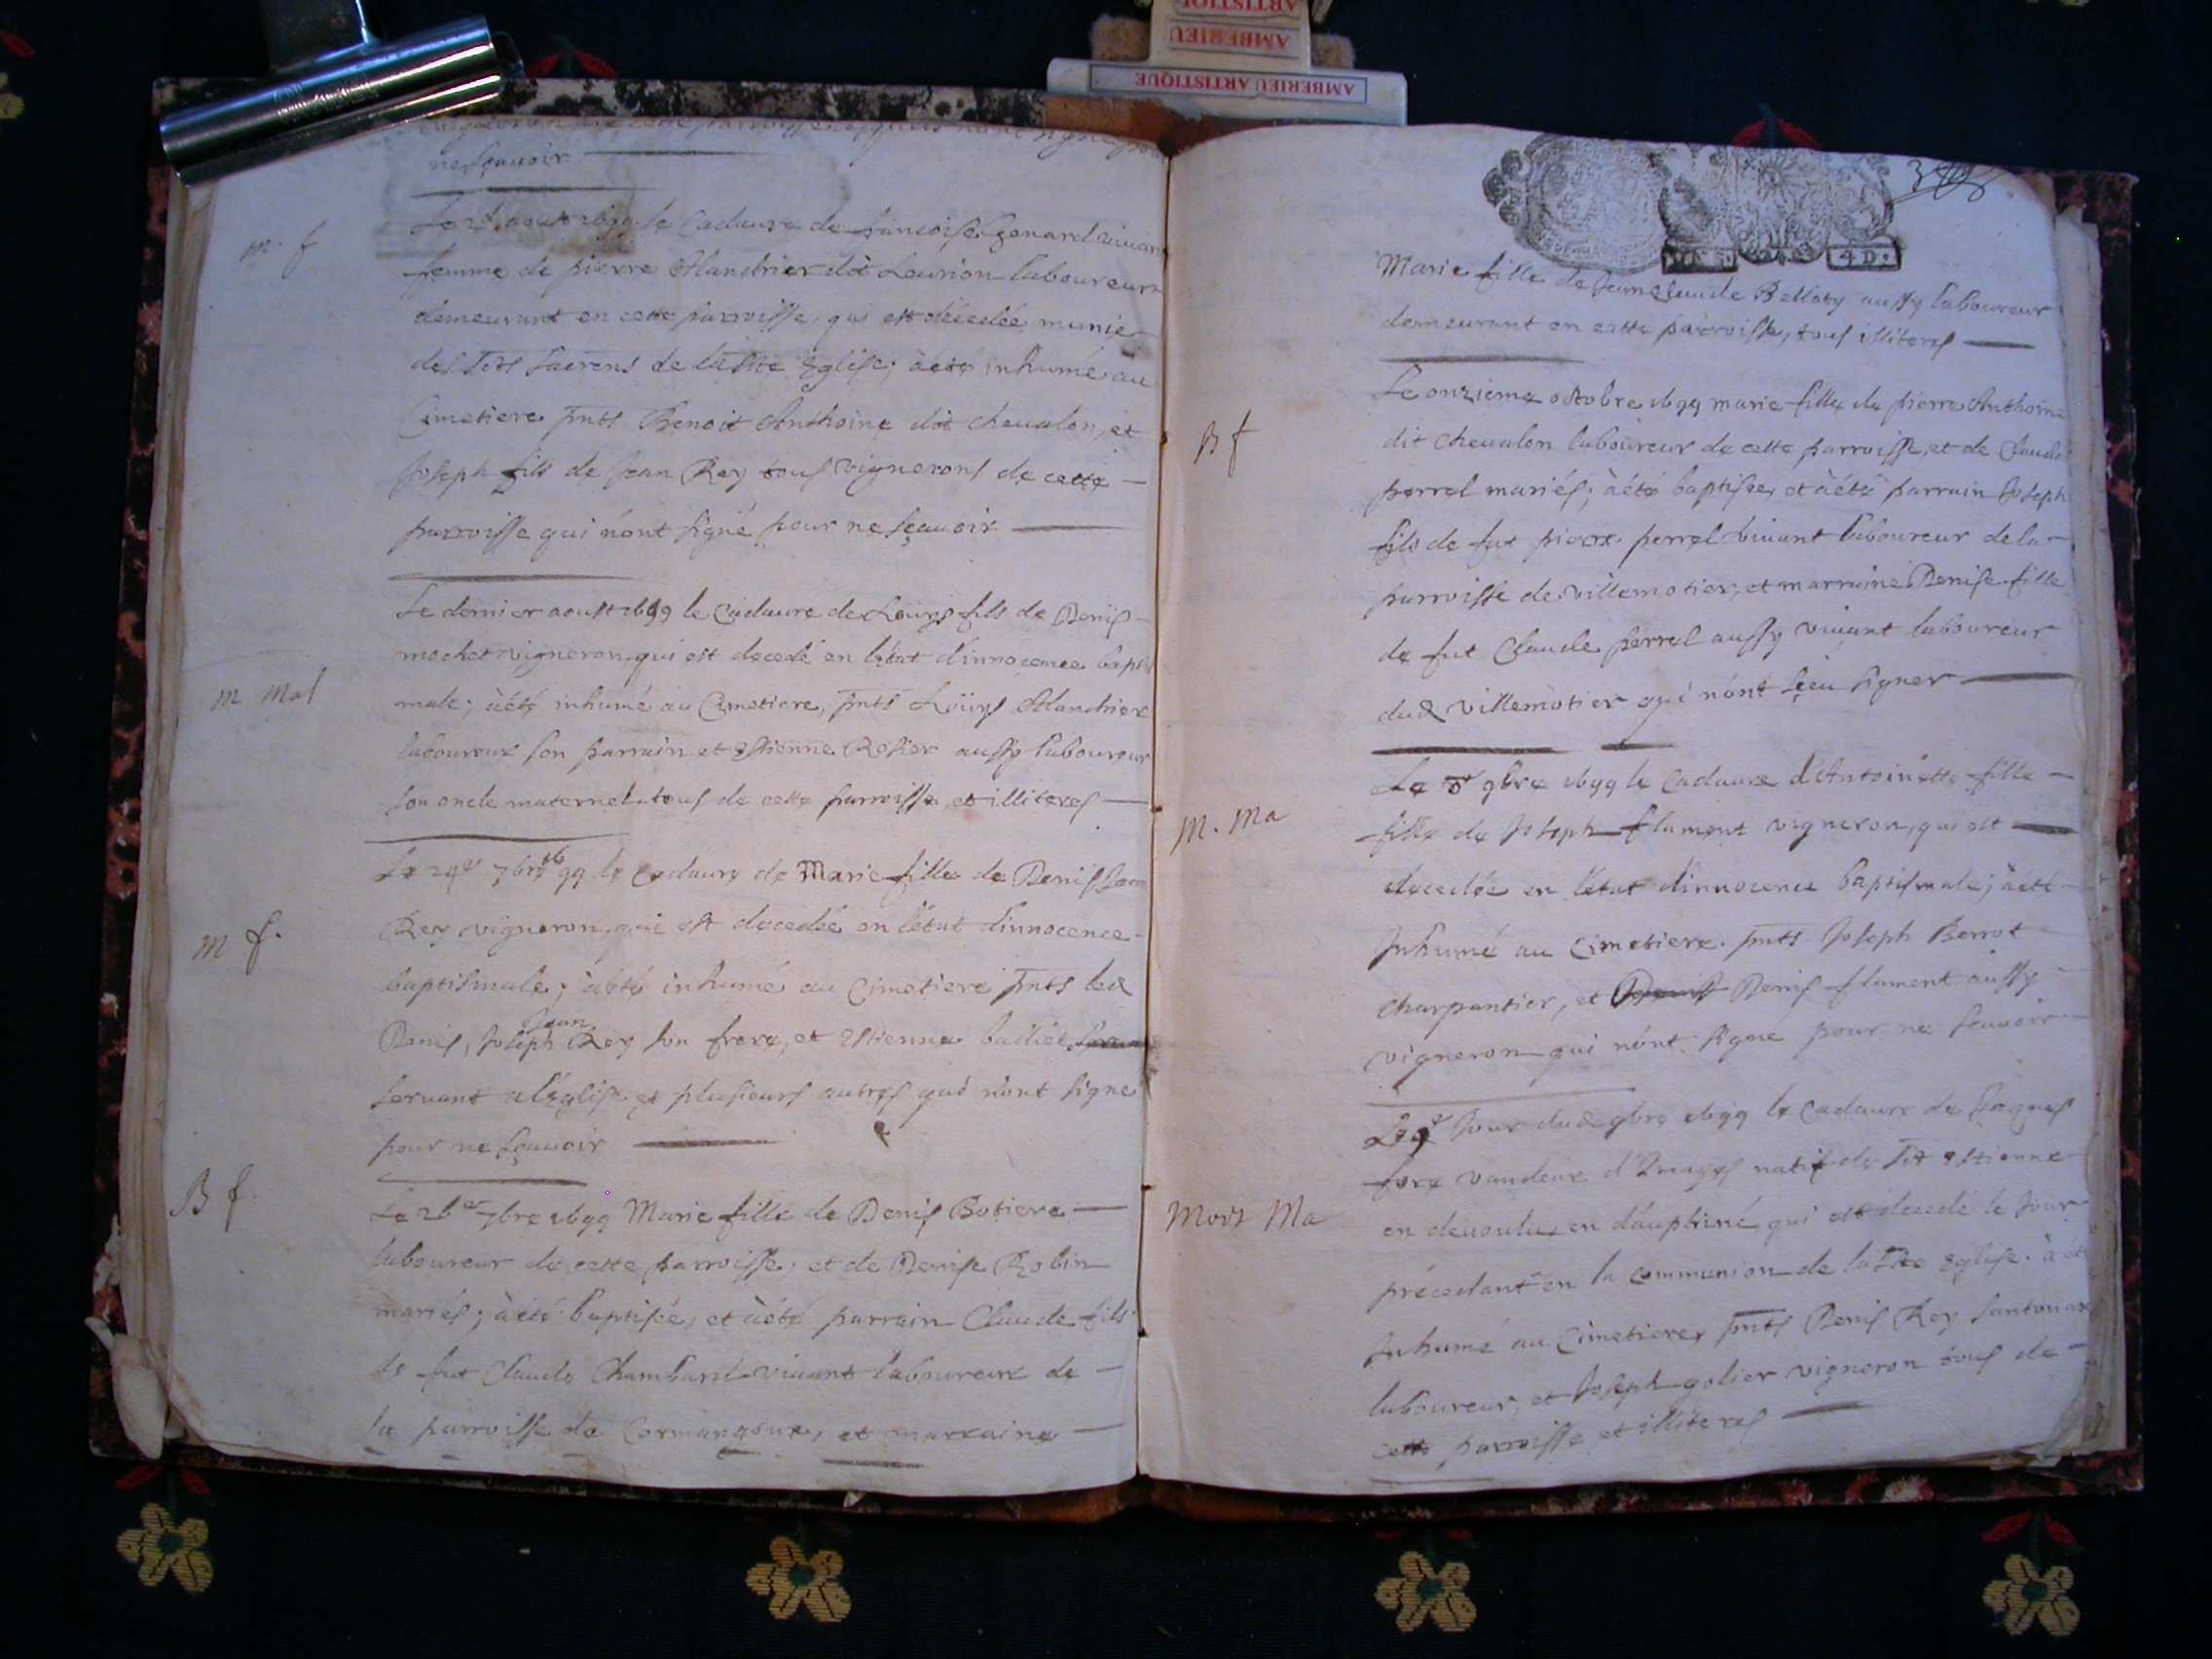 ARTISTIQUE
AMBERIEU
AMBERIEU ARTISTIQUE
ne sçauoir
m. f
aoust 1699 le Cadaure de francoise Genard viuan
femme de pierre Mandrier dit Lourion laboureur
demeurant en cette parroisse, qui est décedée munie
des Sts Sacrens de la Ste Eglise; àété inhumé au
Cimetiere pnts Benoit Anthoine dit cheualon, et
Joseph fils de Jean Rey tous vignerons de cette
parroisse qui n'ont signé pour ne sçauoir
m Mas
Le dernier aoust 1699 le Cadaure de Louys fils de Denis
mochet vigneron, qui est decedé en l'état d'innocence baptis
male; àété inhumé au Cimetiere, pnts Louys Mandrier
laboureur son parrain et Estienne Rosier aussy laboureur
son oncle maternel, tous de cette parroisse, et illiteres
m f.
Le 24e 7bre 1699 le Cadaure de Marie fille de Denis Jean
Rey vigneron, qui est decedée en l'état d'innocence
baptismale; àété inhumé au Cimetiere pnts led
Denis, Joseph Jean Rey son frere, et Estienne
seruant a l'Eglise et plusieurs autres qui n'ont signe
pour ne sçauoir
B f.
Le 26e 7bre 1699 Marie fille de Denis Botiere
laboureur de cette parroisse, et de Denise Robin
mariés; àété baptisée, et àété parrain Claude fils
de fut Claude Chambard viuant laboureur de
la parroisse de Cormangoux, et marraine
4 D.
Marie fille de Jeanclaude Bellaty aussy laboureur
demeurant en cette parroisse, tous illiteres
B f
Le onzieme octobre 1699 marie fille de pierre Anthoine
dit cheualon laboureur de cette parroisse, et de Claude
perrel mariés; àété baptisée, et àété parrain Joseph
fils de fut pierre perrel viuant laboureur de la
parroisse de villemotier, et marraine Denise fille
de fut Claude perrel aussy viuant laboureur
dud villemotier qui n'ont sçeu signer
M. Ma
Le 9bre 1699 le Cadaure d'Antoinette fille
fille de Joseph flament vigneron, qui est
decedée en l'état d'innocence baptismale; àété
Inhumé au Cimetiere. pnts Joseph Berrot
charpantier, et Denis Denis flament aussy
vigneron qui n'ont signé pour ne scauoir
Mort Ma
Le 9e Jour dud 9bre 1699 le Cadaure de Jaques
fore vandeur d'Images natif de St Estienne
en deuoulus en dauphiné, qui est decedé le Jour
précedant en la communion de la Ste Eglise. à été
Inhumé au Cimetiere, pnts Denis Rey
laboureur, et Joseph golier vigneron tous de
cette parroisse et illiteres